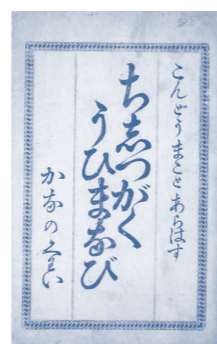 こんどうまことあらはす
ちしつがく
うひまなび
かなのくわい